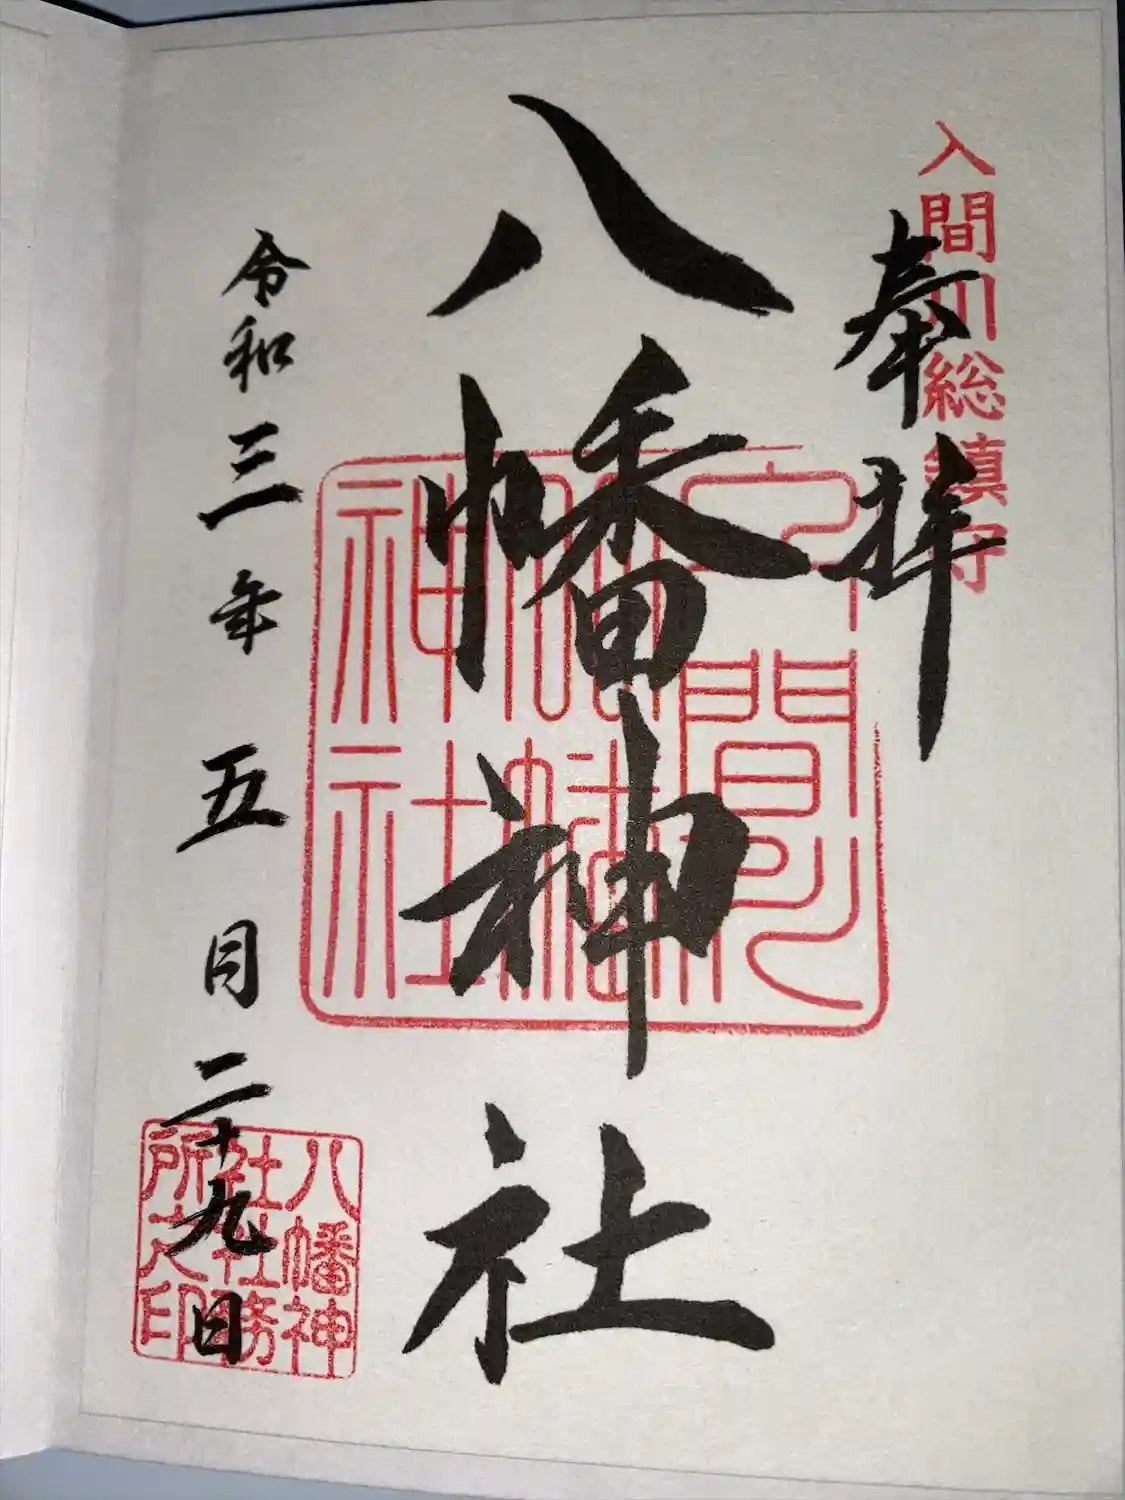 入間川総鎮守
奉拝
八幡神社
入間川
八幡
神社
令和三年五月二十九日
八幡神
社社務
所之印